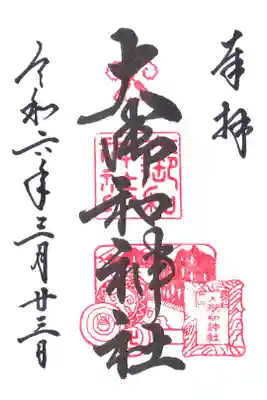 奉拝
大御和神社
令和六年三月廿三日
大御和神社